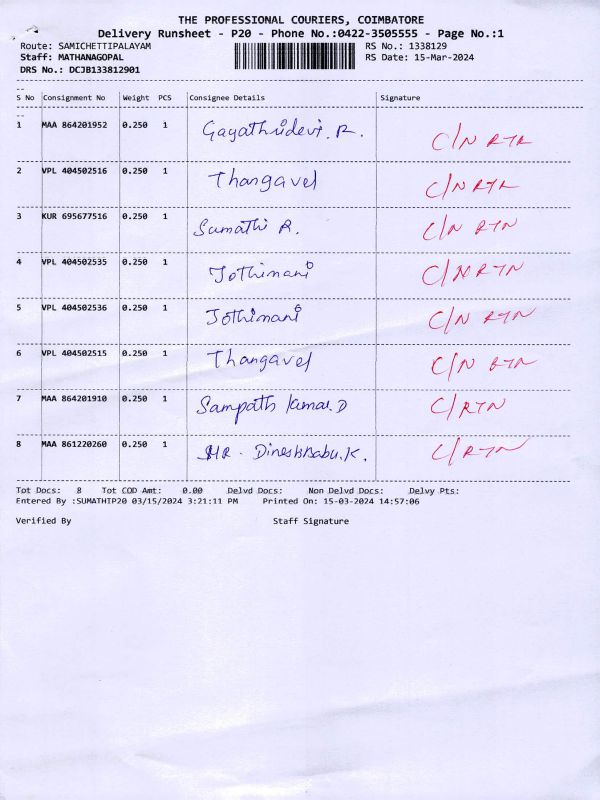 THE PROFESSIONAL COURIERS, COIMBATORE
Delivery Runsheet - P20 - Phone No.:0422-3505555 - Page No.:1
Route: SAMICHETTIPALAYAM RS No.: 1338129
Staff: MATHANAGOPAL RS Date: 15-Mar-2024
DRS No.: DCJB133812901
S No Consignment No Weight PCS Consignee Details Signature
1 MAA 864201952 0.250 1 Gayathridevi. R. C/N RTN
2 VPL 404502516 0.250 1 Thangavel C/N RTN
3 KUR 695677516 0.250 1 Sumathi R. C/N RTN
4 VPL 404502535 0.250 1 Jothimani C/N RTN
5 VPL 404502536 0.250 1 Jothimani C/N RTN
6 VPL 404502515 0.250 1 Thangavel C/N RTN
7 MAA 864201910 0.250 1 Sampath kumar. D C/RTN
8 MAA 861220260 0.250 1 MR. DineshBabu.K. C/RTN
Tot Docs: 8 Tot COD Amt: 0.00 Delvd Docs: Non Delvd Docs: Delvy Pts:
Entered By :SUMATHIP20 03/15/2024 3:21:11 PM Printed On: 15-03-2024 14:57:06
Verified By Staff Signature